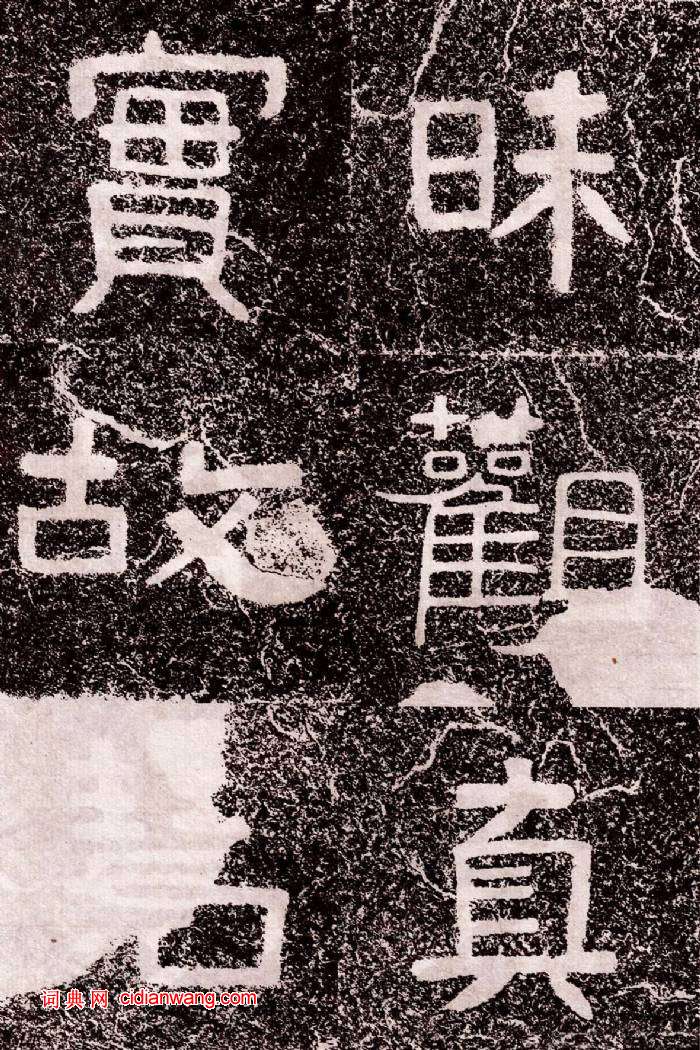 昧觀真
實故
词典网 cidianwang.com